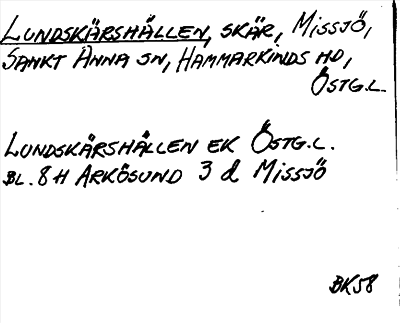 LUNDSKÄRSHÄLLEN, SKÄR, MISSJÖ,
SANKT ANNA SN, HAMMARKINDS HD,
ÖSTG.L.
LUNDSKÄRSHÄLLEN EK ÖSTG.L.
BL. 8H ARKÖSUND 3 d MISSJÖ
BK58